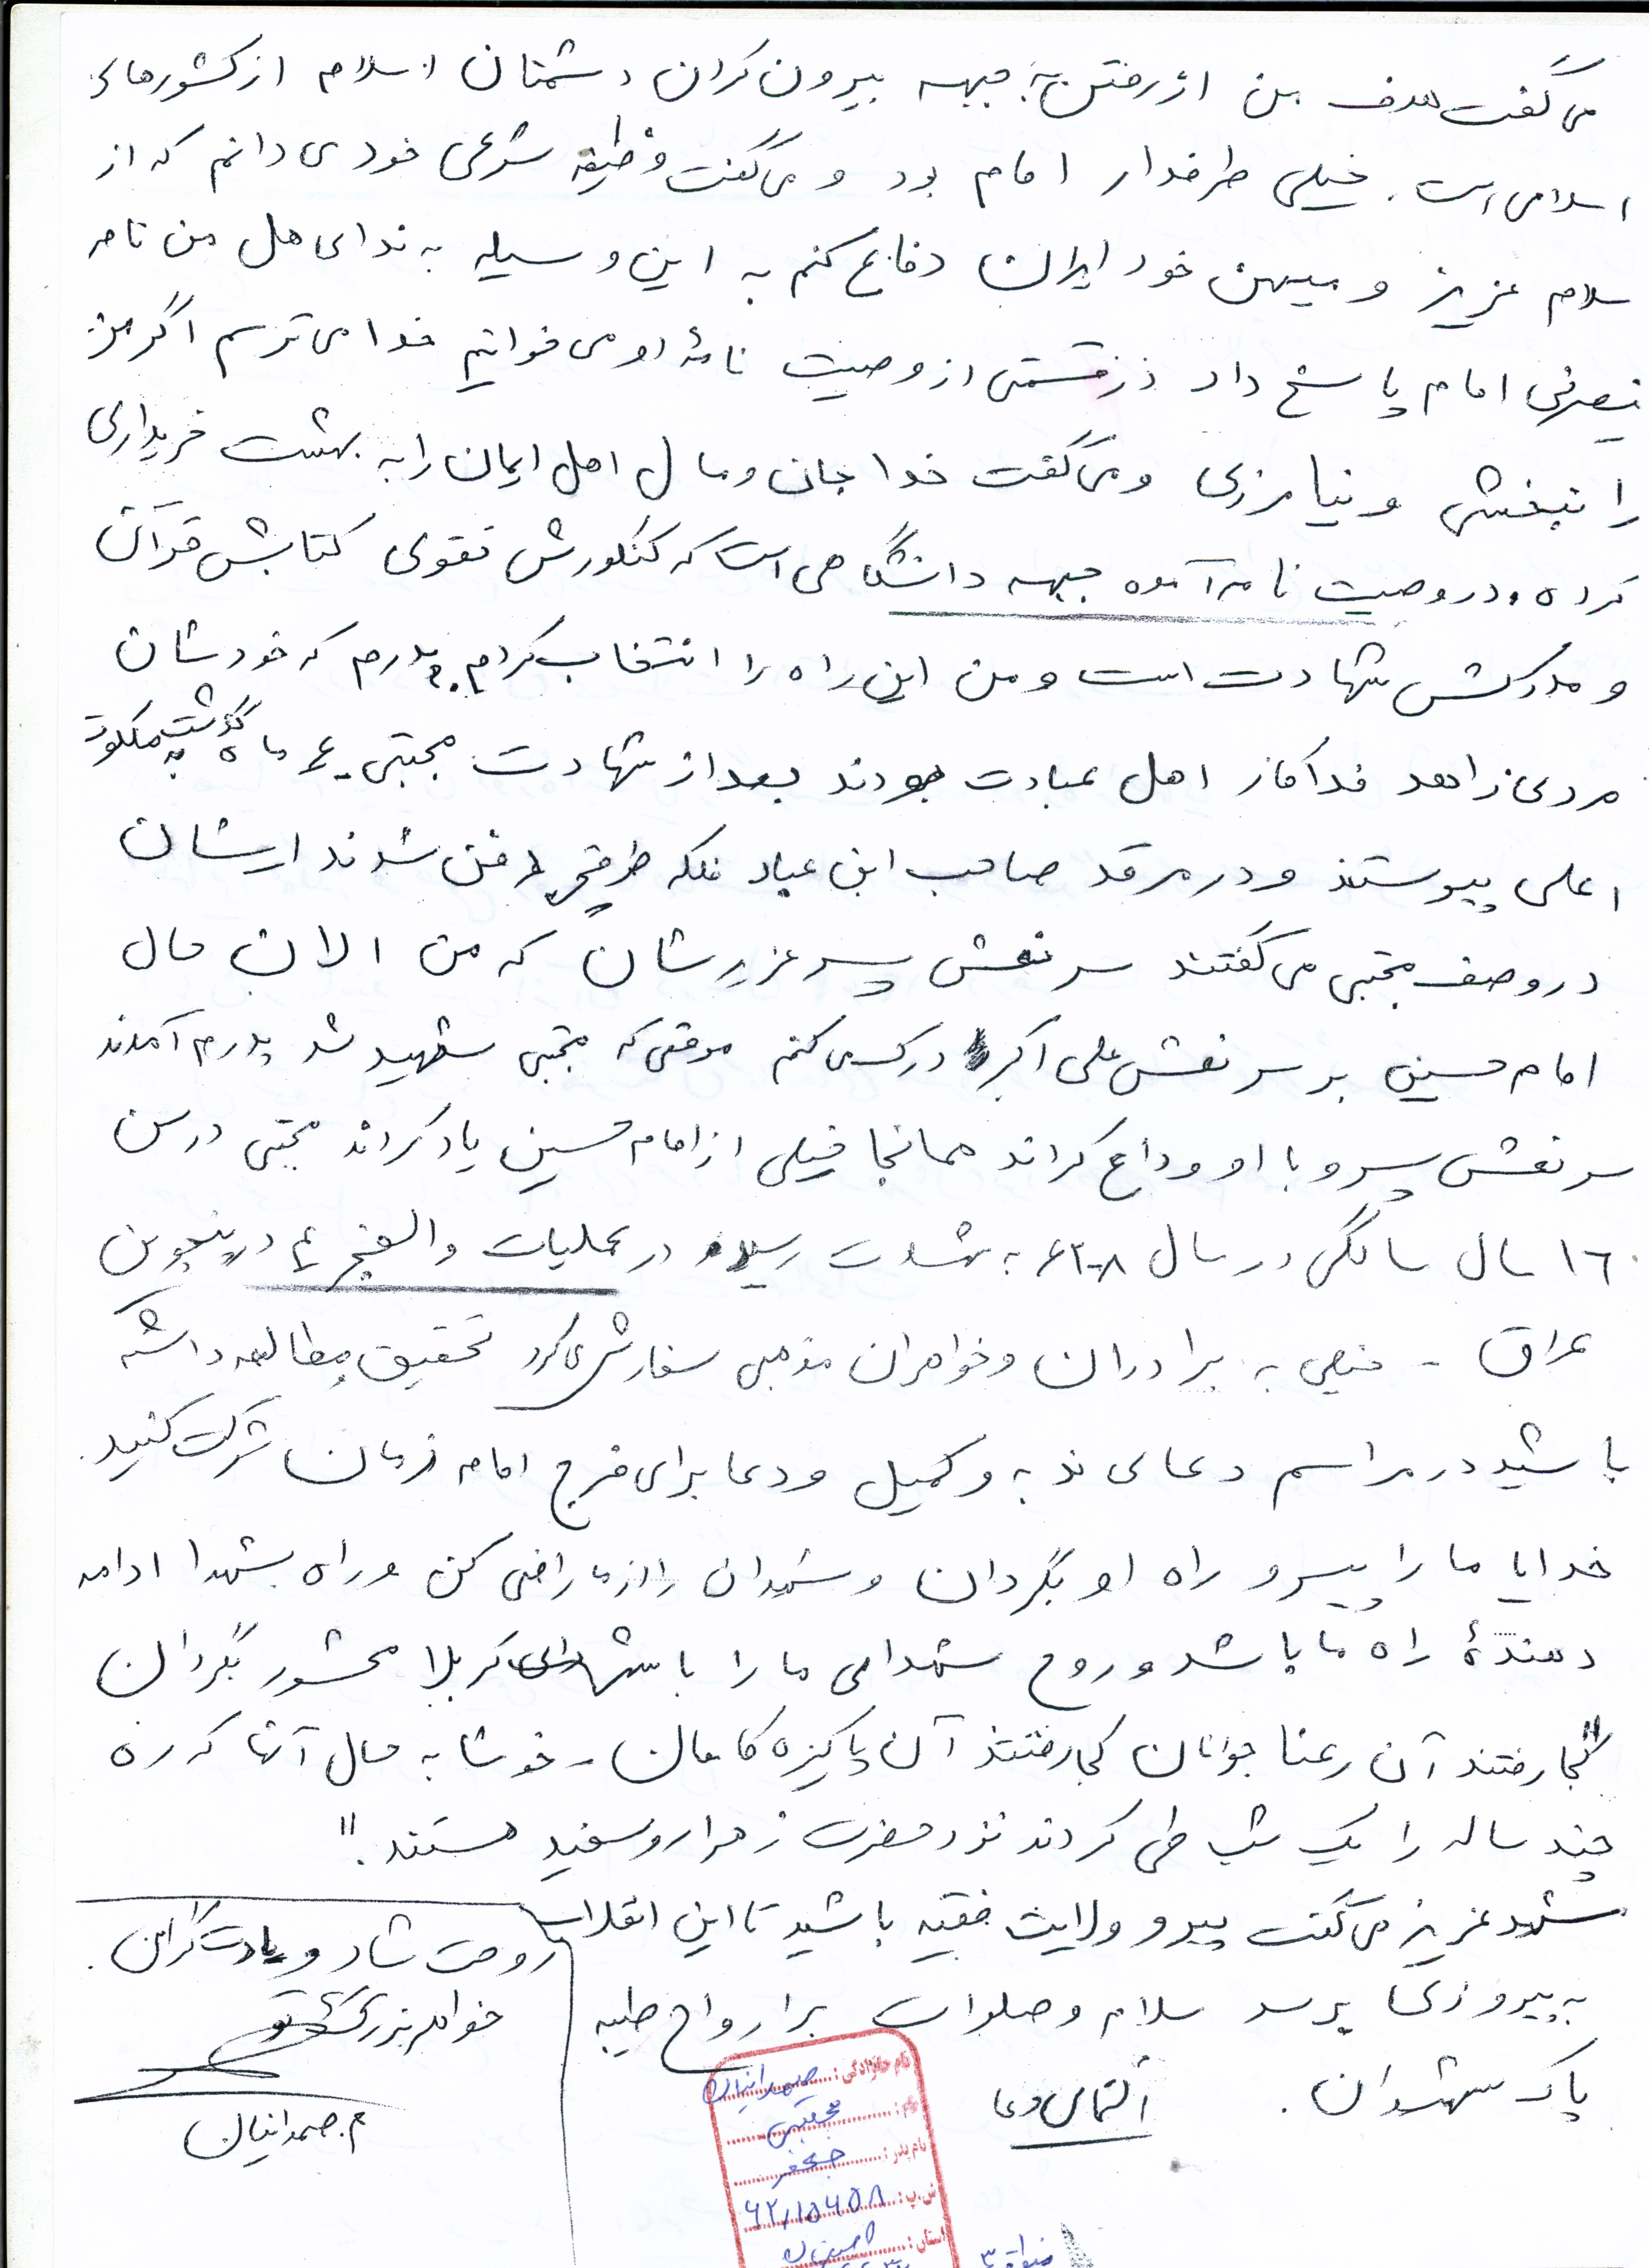 می گفت هدف من از رفتن به جبهه بیرون کردن دشمنان اسلام از کشورهای
اسلامی است. خیلی طرفدار امام بود و می گفت وظیفه شرعی خود می دانم که از
سلام عزیز و میهن خود ایران دفاع کنم به این وسیله به ندای هل من نا صر
ینصرنی امام پاسخ داد در قسمتی از وصیت نامهٔ او می خوانیم خدا می ترسم اگر من
را نبخشی و نیامرزی و می گفت خدا جان و مال اهل ایمان را به بهشت خریداری
کرده و در وصیت نامه آمده جبهه دانشگاهی است که کنکورش تقوی کتابش قرآن
و مدرکش شهادت است و من این راه را انتخاب کردم. پدرم که خودشان
مردی زاهد فداکار اهل عبادت بودند بعد از شهادت مجتبی ۴ ماه گذشت به ملکوت
اعلی پیوستند و در مرقد صاحب ابن عباد فلکه طوقچی دفن شدند ایشان
در وصف مجتبی می گفتند سر نعش پسر عزیزشان که من الان حال
امام حسین بر سر نعش علی اکبر درک می کنم موقعی که مجتبی شهید شد پدرم آمدند
سر نعش پسر و با او وداع کردند همانجا خیلی از امام حسین یاد کردند مجتبی در سن
۱۶ سال سالگی در سال ۶۲-۸ به شهادت رسید در عملیات والفجر ۴ در پنجوین
عراق - خیلی به برادران و خواهران مذهبی سفارش می کرد تحقیق و مطالعه داشته
باشید در مراسم دعای ندبه و کمیل و دعا برای فرج امام زمان شرکت کنید.
خدایا ما را پیرو راه او بگردان و شهیدان را از ما راضی کن و راه شهدا ادامه
دهندهٔ راه ما باشد و روح شهدای ما را با شهدای کربلا محشور بگردان
"کجا رفتند آن رعنا جوانان کجا رفتند آن پاکیزه کامان - خوشا به حال آنها که ره
چند ساله را یک شب طی کردند نزد حضرت زهرا روسفید هستند."
شهید عزیز می گفت پیرو ولایت فقیه باشید تا این انقلاب
به پیروزی برسد سلام و صلوات بر ارواح طیبه
پاک شهیدان. التماس دعا
روحت شاد و یادت گرامی.
خواهر بزرگ تو
م. صمدانیان
نام خانوادگی: صمدانیان
نام: مجتبی
نام پدر: جعفر
ش.پ: ۶۲/۱۵۴۵۸
استان: اصفهان
منطقه ۳